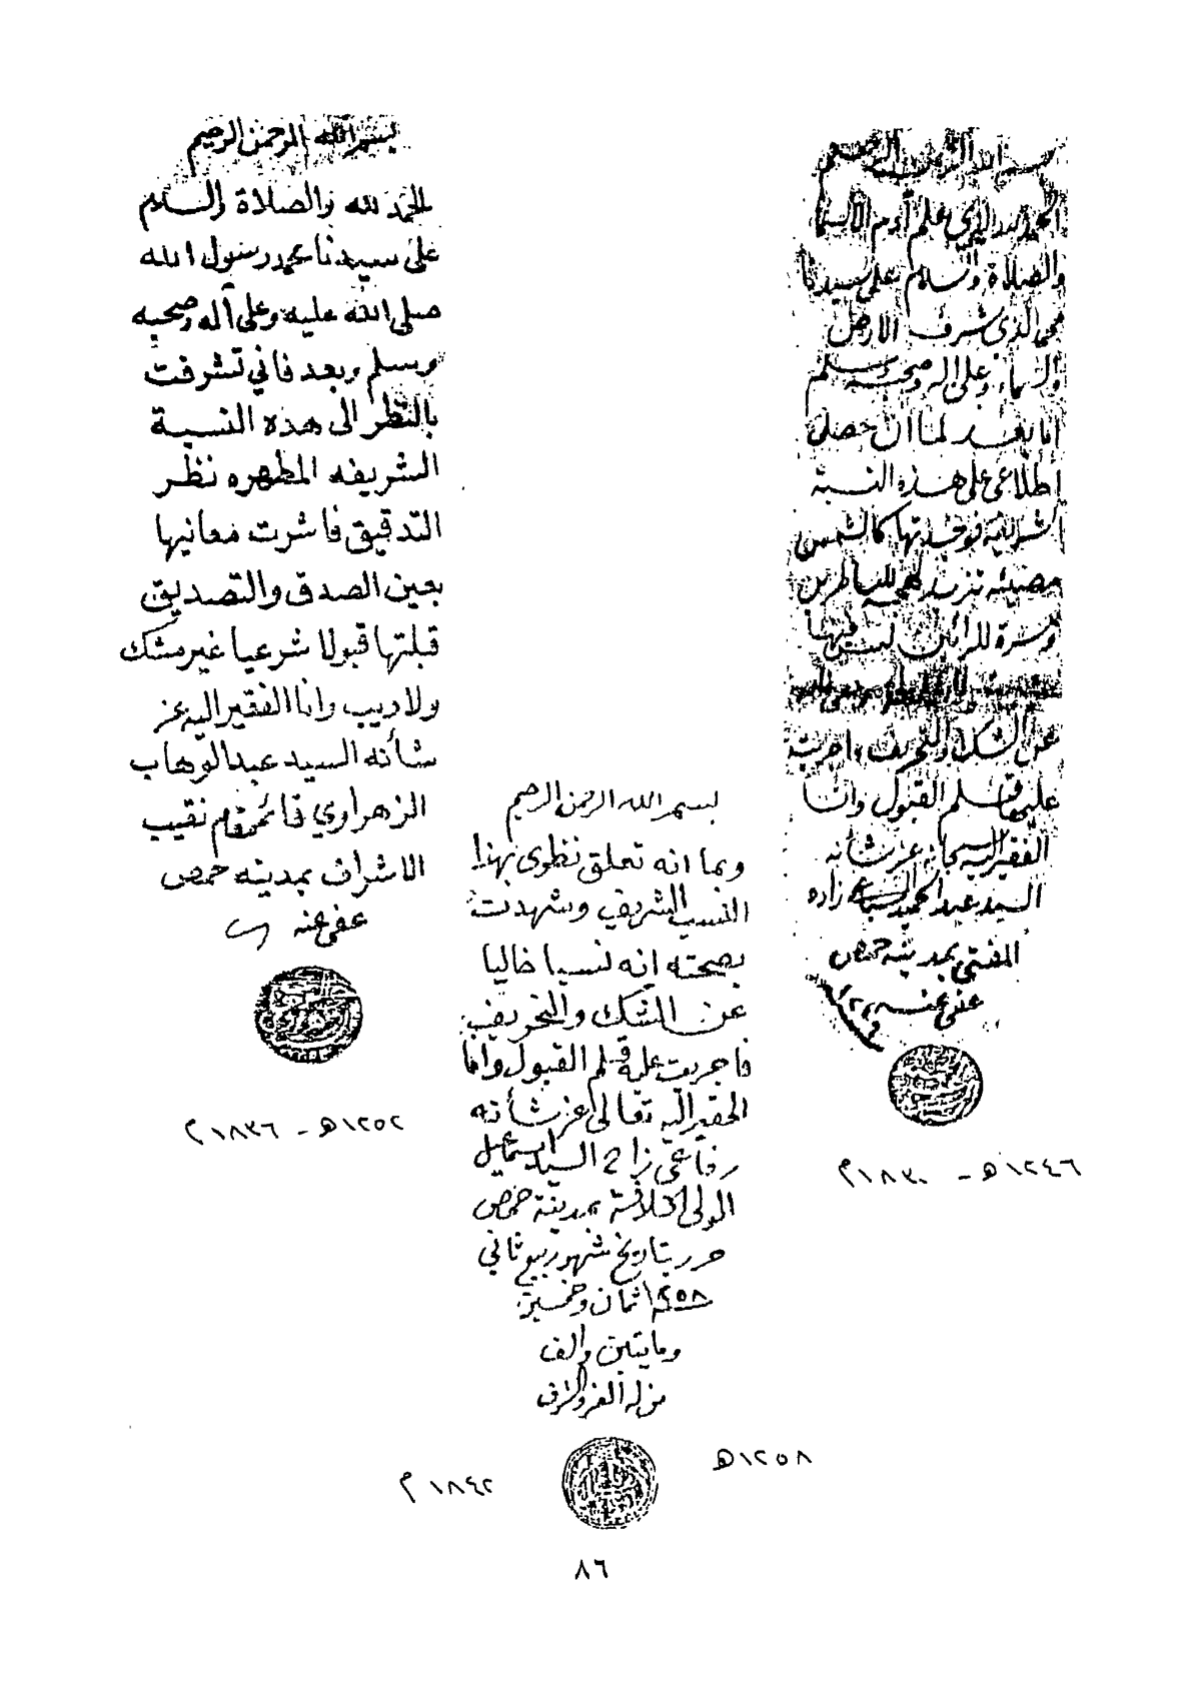 بسم الله الرحمن الرحيم
الحمد لله الذي علم آدم الأسما
والصلاة والسلام على سيدنا
الذي شرف الارض
والسماء وعلى اله وصحبه وسلم
اما بعد لما ان حصل
اطلاعي على هذه النسبة
فوجدتها كالشمس
مضيئه للناظرين
ومسرة للرائين ليس فيها
عن الشك والتحريف واجريت
عليها قلم القبول وانا
الفقير اليه سبحانه عز شأنه
السيد عبد الحميد السباعي زاده
المفتي بمدينه حمص
عفي عنه
١٢٤٦ هـ - ١٨٣٠ م
بسم الله الرحمن الرحيم
وبما انه تعلق نظري بهذا
النسب الشريف وشهدت
بصحته انه نسبا خاليا
عن الشك والتحريف
فاجريت عليه قلم القبول وانا
الحقير اليه تعالى عز شأنه
رفاعي زاده السيد اسماعيل
المولى بمدينة حمص
حرر بتاريخ شهر ربيع ثاني
١٢٥٨ ثمان وخمسين
ومايتين والف
من له العز والشرف
١٢٥٨ هـ
١٨٤٢ م
بسم الله الرحمن الرحيم
الحمد لله والصلاة والسلام
على سيدنا محمد رسول الله
صلى الله عليه وعلى آله وصحبه
وسلم وبعد فاني تشرفت
بالنظر الى هذه النسبة
الشريفه المطهره نظر
التدقيق فاشرت معانيها
بعين الصدق والتصديق
قبلتها قبولا شرعيا غير مشك
ولا ريب وانا الفقير اليه عز
شأنه السيد عبد الوهاب
الزهراوي قائمقام نقيب
الاشراف بمدينه حمص
عفي عنه
١٢٥٢ هـ - ١٨٣٦ م
٨٦